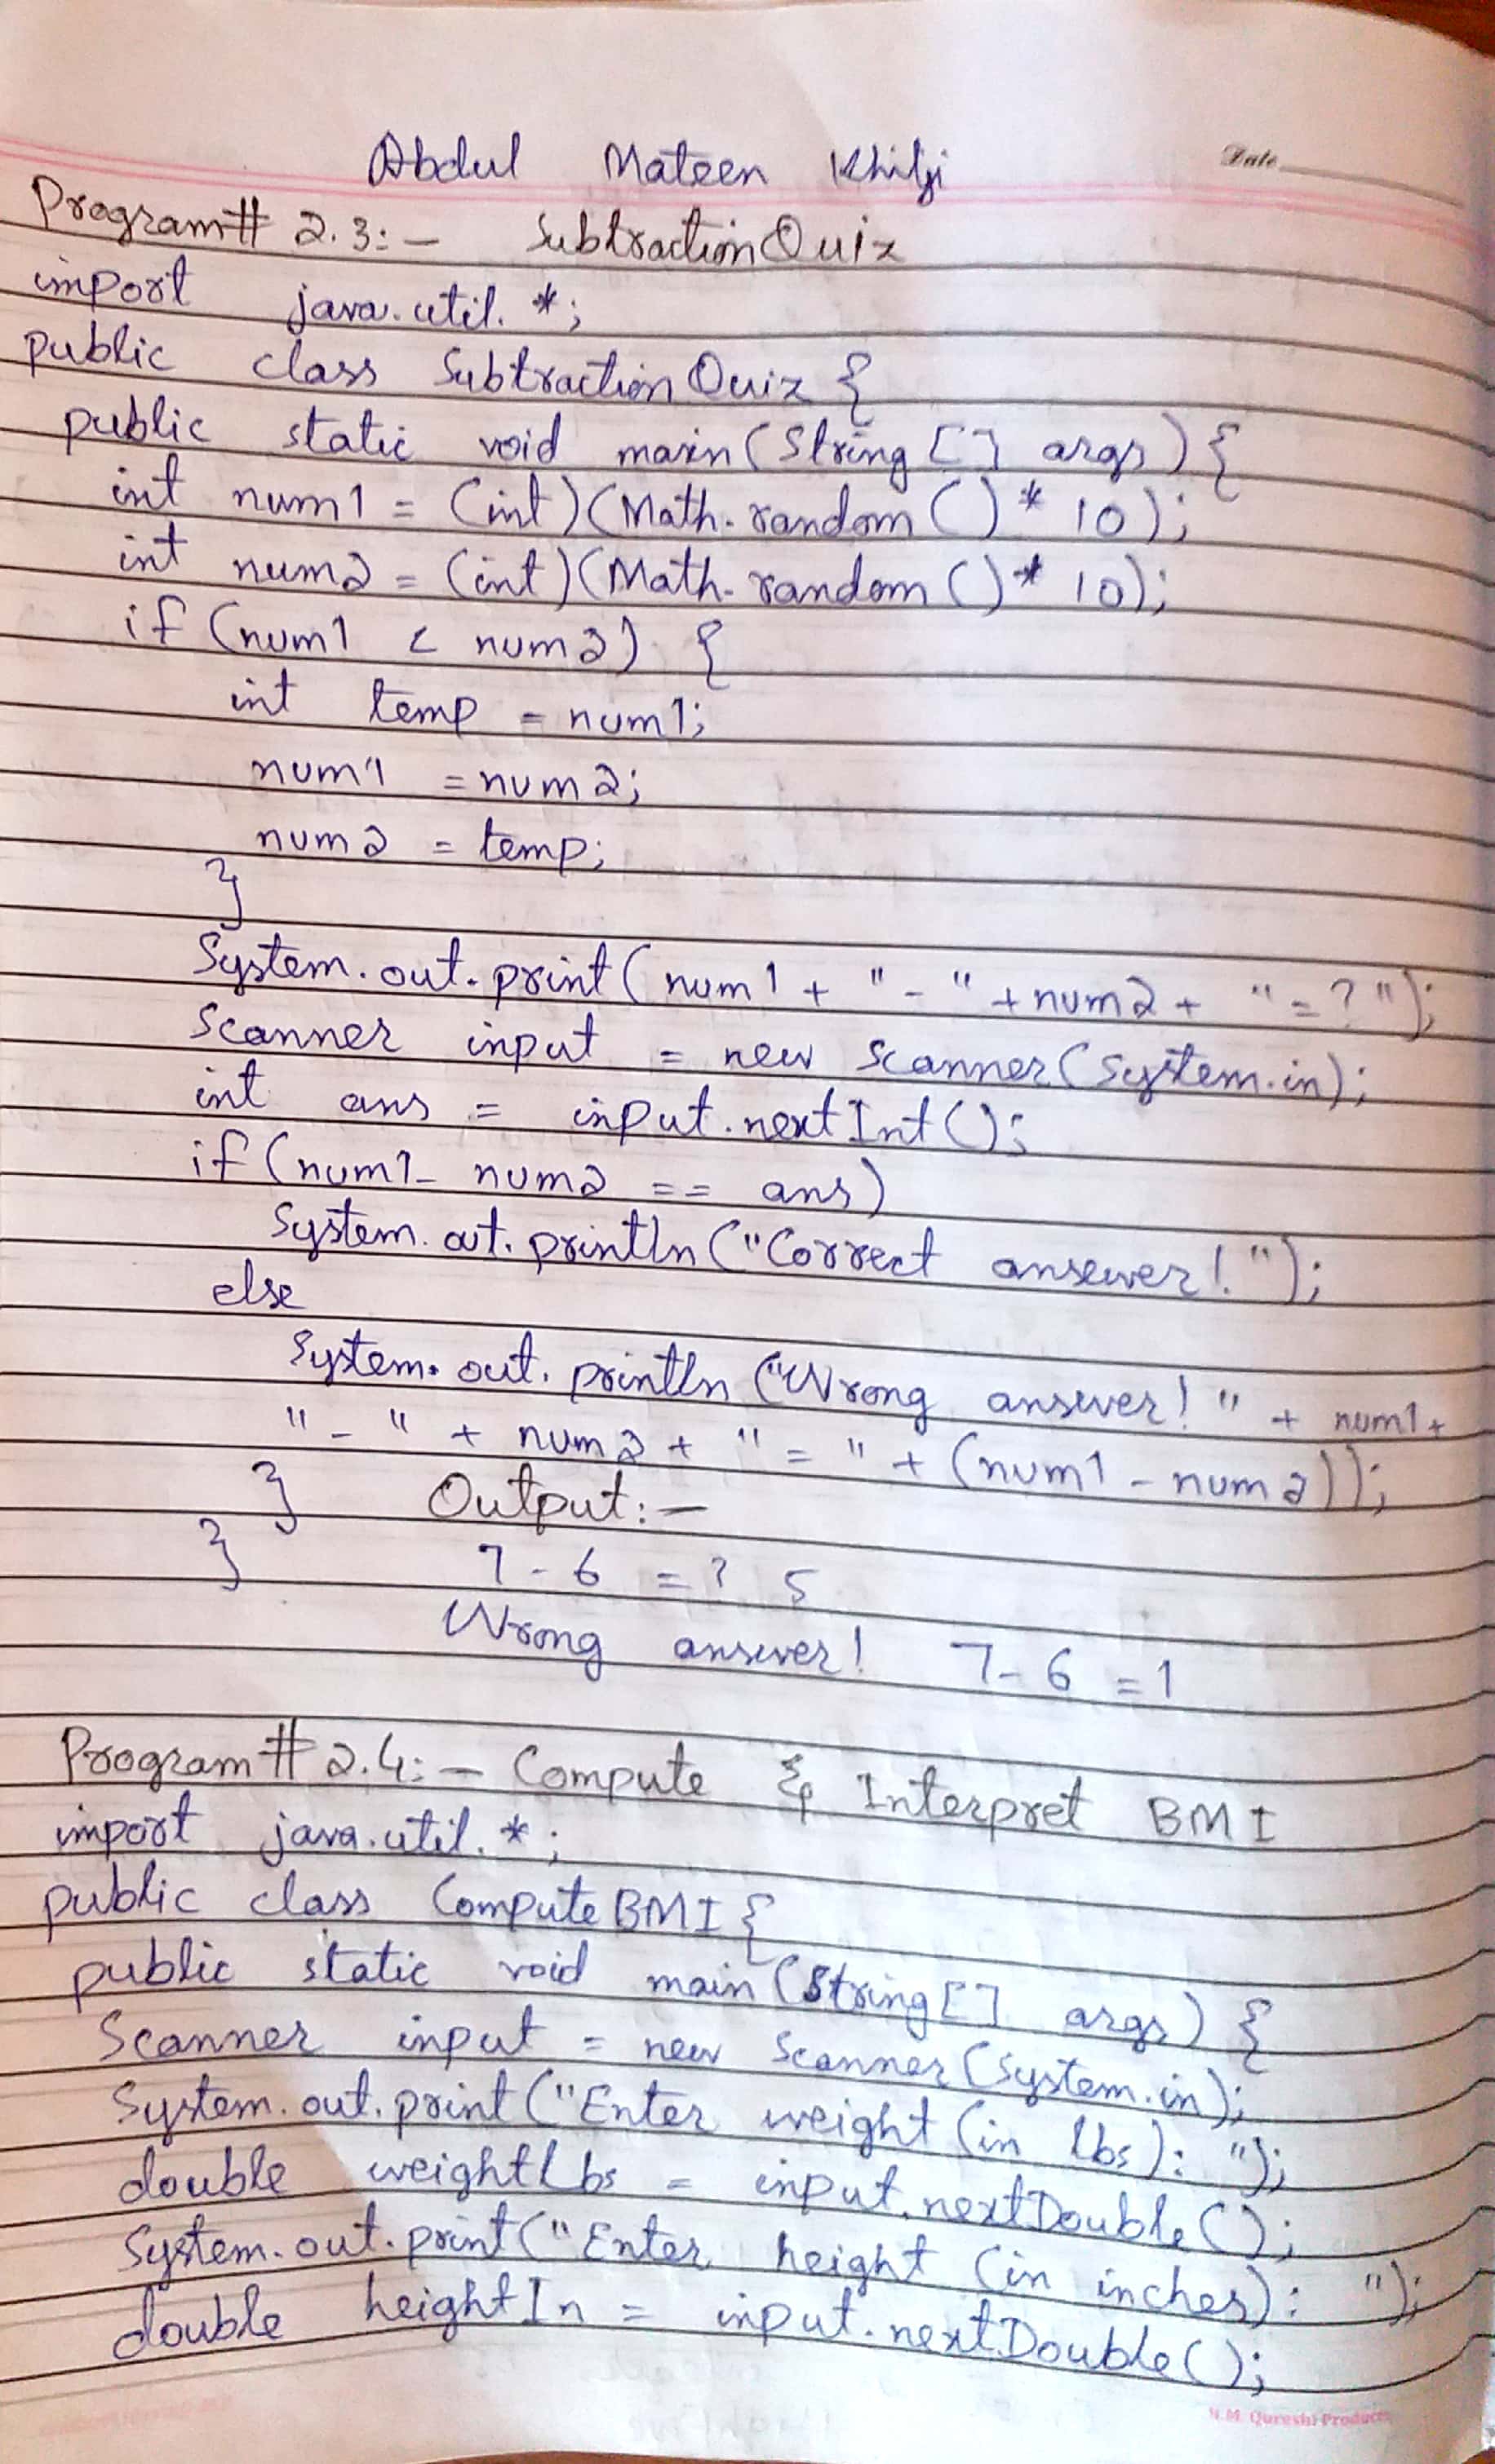 Abdul Mateen Khilji
Date
Program# 2.3:- SubtractionQuiz
import java.util.*;
public class SubtractionQuiz {
public static void main(String [] args) {
int num1 = (int)(Math.random()* 10);
int num2 = (int)(Math.random()* 10);
if (num1 < num2) {
int temp = num1;
num1 = num2;
num2 = temp;
}
System.out.print(num1 + " - " + num2 + " = ? ");
Scanner input = new Scanner(System.in);
int ans = input.nextInt();
if (num1 - num2 == ans)
System.out.println("Correct ansewer!");
else
System.out.println("Wrong answer! " + num1 +
" - " + num2 + " = " + (num1 - num2));
} Output:-
} 7 - 6 = ? 5
Wrong answer! 7 - 6 = 1
Program# 2.4:- Compute & Interpret BMI
import java.util.*;
public class ComputeBMI {
public static void main(String[] args) {
Scanner input = new Scanner(System.in);
System.out.print("Enter weight (in lbs): ");
double weightLbs = input.nextDouble();
System.out.print("Enter height (in inches): ");
double heightIn = input.nextDouble();
N.M. Qureshi Products